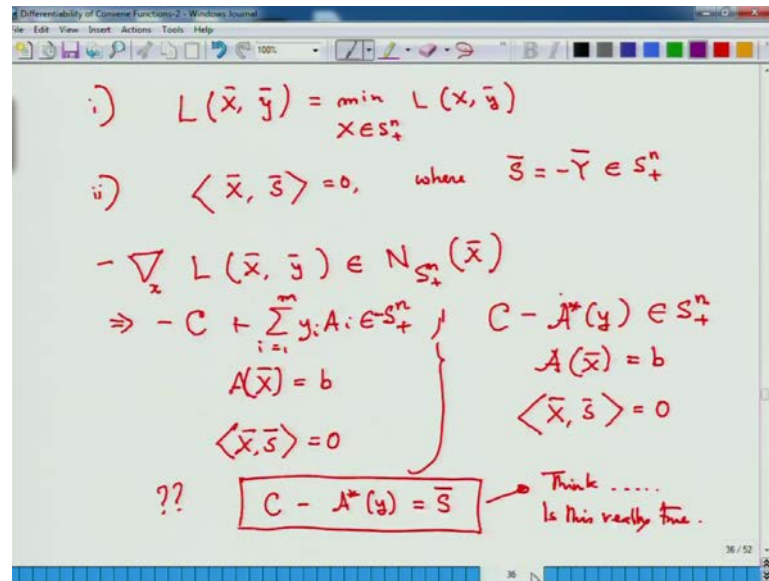 Differentiability of Convene Functions-2 - Windows Journal
File Edit View Insert Actions Tools Help
100%
B I
i) L(x̄, ȳ) = min L(x, ȳ)
X ∈ S₊ⁿ
ii) ⟨x̄, s̄⟩ = 0, where S̄ = -Ȳ ∈ S₊ⁿ
-∇ₓ L(x̄, ȳ) ∈ N_{S₊ⁿ}(x̄)
⇒ -C + Σ_{i=1}^{m} yᵢ Aᵢ ∈ -S₊ⁿ , C - A*(y) ∈ S₊ⁿ
A(x̄) = b A(x̄) = b
⟨x̄, s̄⟩ = 0 ⟨x̄, s̄⟩ = 0
?? C - A*(y) = S̄ Think .....
Is this really true.
36 / 52
36